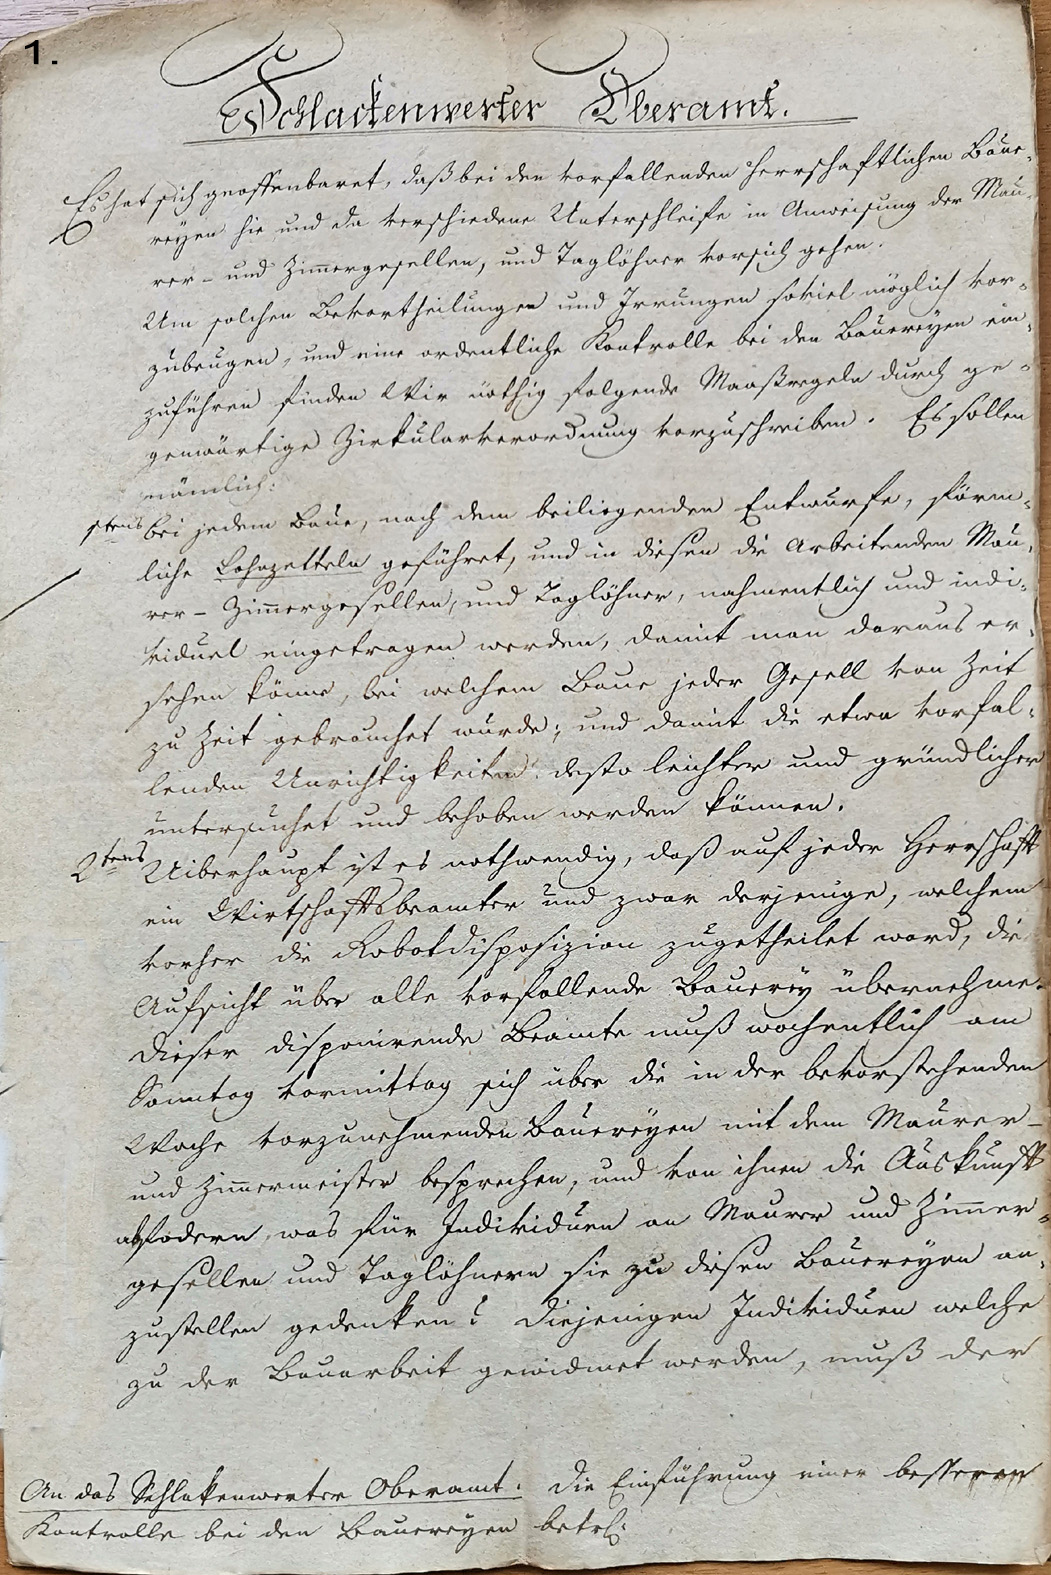 1.
Schlackenwerter Oberamt.
Es hat sich geoffenbaret, daß bei den vorfallenden herrschaftlichen Baue-
reyen hie und da verschiedene Unterschleife in Anweisung der Mau-
rer- und Zimmergesellen, und Taglöhner vorsich gehen.
Um solchen Bevortheilungen und Irrungen soviel möglich vor-
zubeugen, und eine ordentliche Kontrolle bei den Bauereyen ein-
zuführen finden Wir nöthig folgende Maaßregeln durch ge-
genwärtige Zirkularverordnung vorzuschreiben. Es sollen
nämlich:
1tens bei jedem Baue, nach dem beiliegenden Entwurfe, förm-
liche Lohnzetteln geführet, und in diesen die Arbeitenden Mau-
rer- Zimmergesellen, und Taglöhner, nahmentlich und indi-
viduel eingetragen werden, damit man daraus er-
sehen könne, bei welchem Baue jeder Gesell von Zeit
zu Zeit gebrauchet wurde; und damit die etwa vorfal-
lenden Unrichtigkeiten desto leichter und gründlicher
untersuchet und behoben werden können.
2tens Uiberhaupt ist es nothwendig, daß auf jeder Herrschaft
ein Wirtschaftsbeamter und zwar derjenige, welchem
vorher die Robotdisposizion zugetheilet ward, die
Aufsicht über alle vorfallende Bauerey übernehme.
Dieser disponirende Beamte muß wochentlich am
Sonntag vormittag sich über die in der bevorstehenden
Woche vorzunehmenden Bauereyen mit dem Maurer-
und Zimmermeister besprechen, und von ihnen die Auskunft
abfodern, was für Individuen an Maurer und Zimmer-
gesellen und Taglöhnern sie zu diesen Bauereyen an-
zustellen gedenken? Diejenigen Individuen welche
zu der Bauarbeit gewidmet werden, muß der
An das Schlakenwerter Oberamt. Die Einführung einer besseren
Kontrolle bei den Bauereyen betrl: